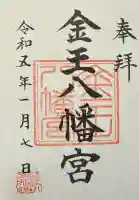 奉拝
金王八幡宮
令和五年一月七日